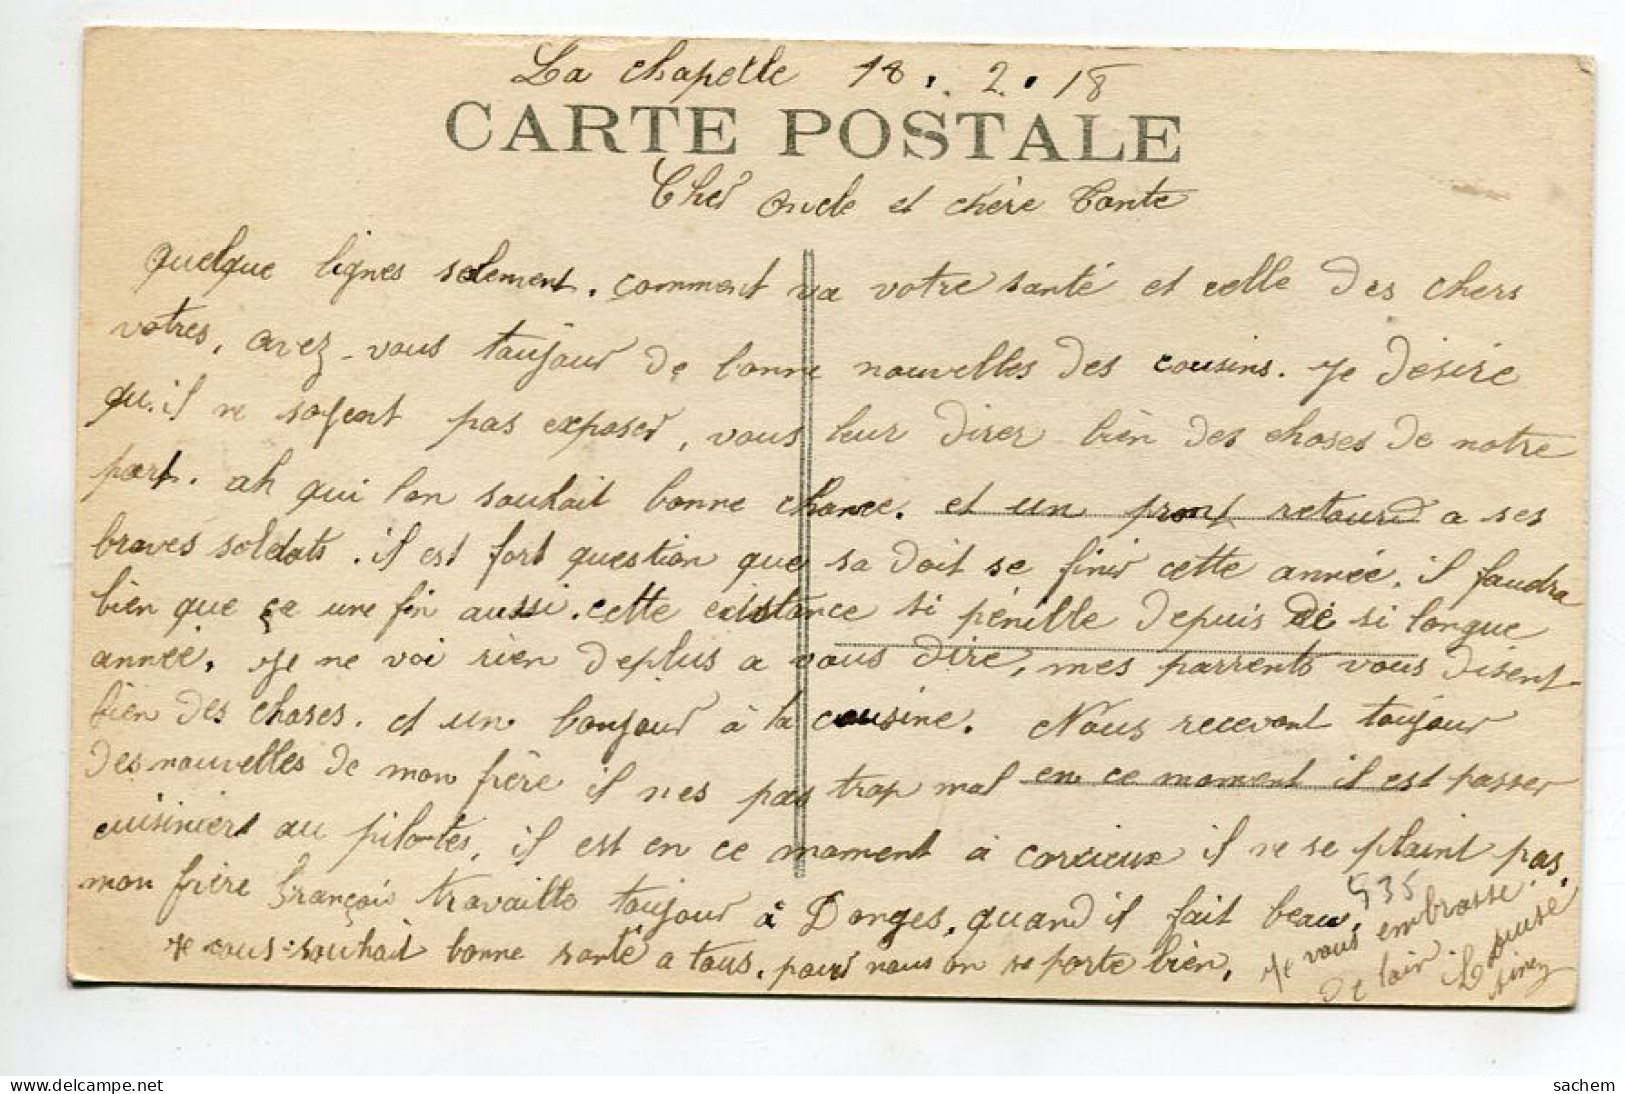 La chapelle 18. 2. 18
CARTE POSTALE
Cher oncle et chère Tante
quelque lignes selement. comment va votre santé et celle des chers
votres, avez-vous toujour de bonne nouvelles des cousins. Je désire
qu'il ne soyent pas exposer, vous leur direr bièn des choses de notre
part. ah qui l'on souhait bonne chance. et un pront retour a ses
braves soldats. il est fort question que sa doit se finir cette année. il faudra
bien que ce une fin aussi. cette existance si pénible depuis de si longue
année. Je ne voi rièn deplus a vous dire, mes parrents vous disent
bien des choses. et un bonjour à la cousine. Nous recevont toujour
des nouvelles de mon frère il nes pas trop mal en ce moment il est passer
cuisiniert au pilotes, il est en ce moment à corcieux il ne se plaint pas.
mon frère François travaille toujour à Donges, quand il fait beau.
935
Je vous souhait bonne santé a tous. pour nous on se porte bien.
Je vous embrasse
de loin. Louise